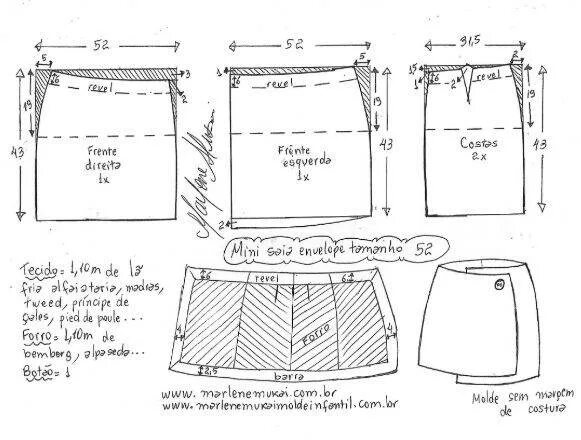 52
52
31,5
5
3
6
revel
2
19
43
Frente
direita
1x
1
5
6
revel
19
43
Frente
esquerda
1x
2
1,5
2
6
1
2
revel
19
43
Costas
2x
Marlene Mukai
Mini saia envelope tamanho 52
Tecido = 1,10m de lã
fria alfaiataria, madras,
tweed, príncipe de
gales, pied de poule...
Forro = 1,10m de
bemberg, alpaseda...
Botão = 1
6
revel
6
4
Forro
4
2,5
barra
www.marlenemukai.com.br
www.marlenemukaimoldeinfantil.com.br
Molde sem margem
de costura